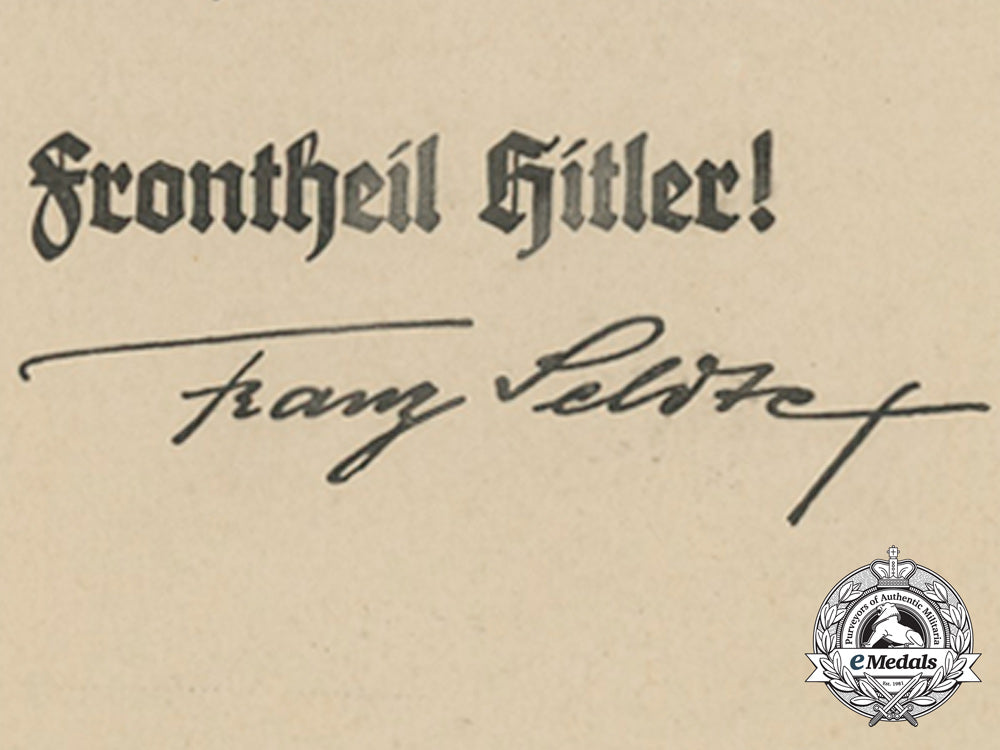 Frontheil Hitler!
Franz Seldte
Purveyors of Authentic Militaria
eMedals
Est. 1981